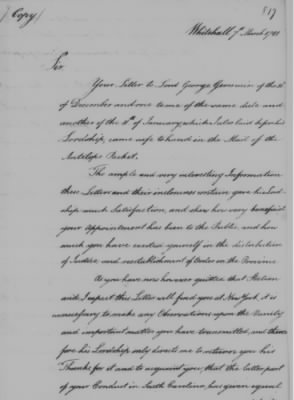 (Copy)
517
Whitehall 7th March 1781
Sir
Your Letter to Lord George Germain of the 10th
of December and one to me of the same date and
another of the 11th of January which I also laid before his
Lordship, came safe to hand in the Mail of the
Antelope Packet.
The ample and very interesting Information
these Letters and their inclosures contain, gave his Lord-
ship much Satisfaction, and shew how very beneficial
your Appointment has been to the Public, and how
much you have exerted yourself in the distribution
of Justice and reestablishment of Order in the Province
As you have now however quitted that Station
and I expect this Letter will find you at New York, it is
unnecessary to make any Observations upon the Variety
and important matter you have transmitted, and there-
fore his Lordship only directs me to return you his
Thanks for it and to acquaint you, that the latter part
of your Conduct in South Carolina, has given equal